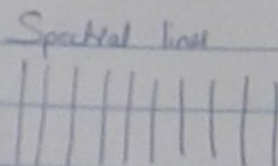 Spectral lines